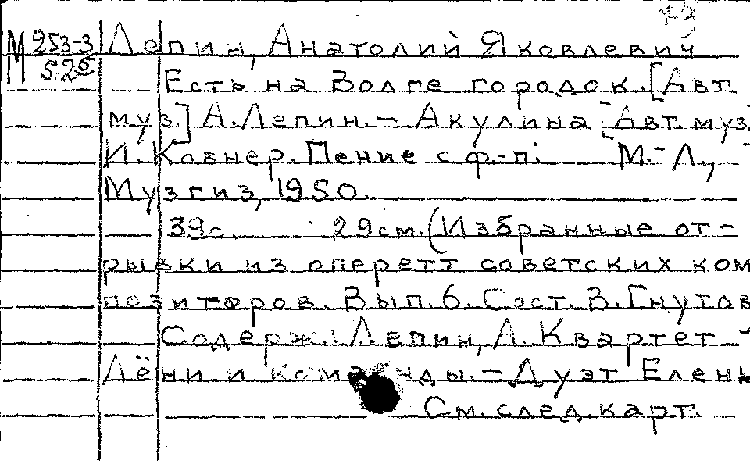 М 253-3
525
Лепин, Анатолий Яковлевич
Есть на Волге городок. [Авт.
муз.] А. Лепин. – Акулина [Авт. муз.
И. Ковнер. Пение с ф-п. М.-Л.,
Музгиз, 1950.
39с. 29см. (Избранные от-
рывки из оперетт советских ком
позиторов. Вып. 6. Сост. В. Гнутов
Содерж.: Лепин, А. Квартет
Лёни и команды. – Дуэт Елен
См. след. карт.